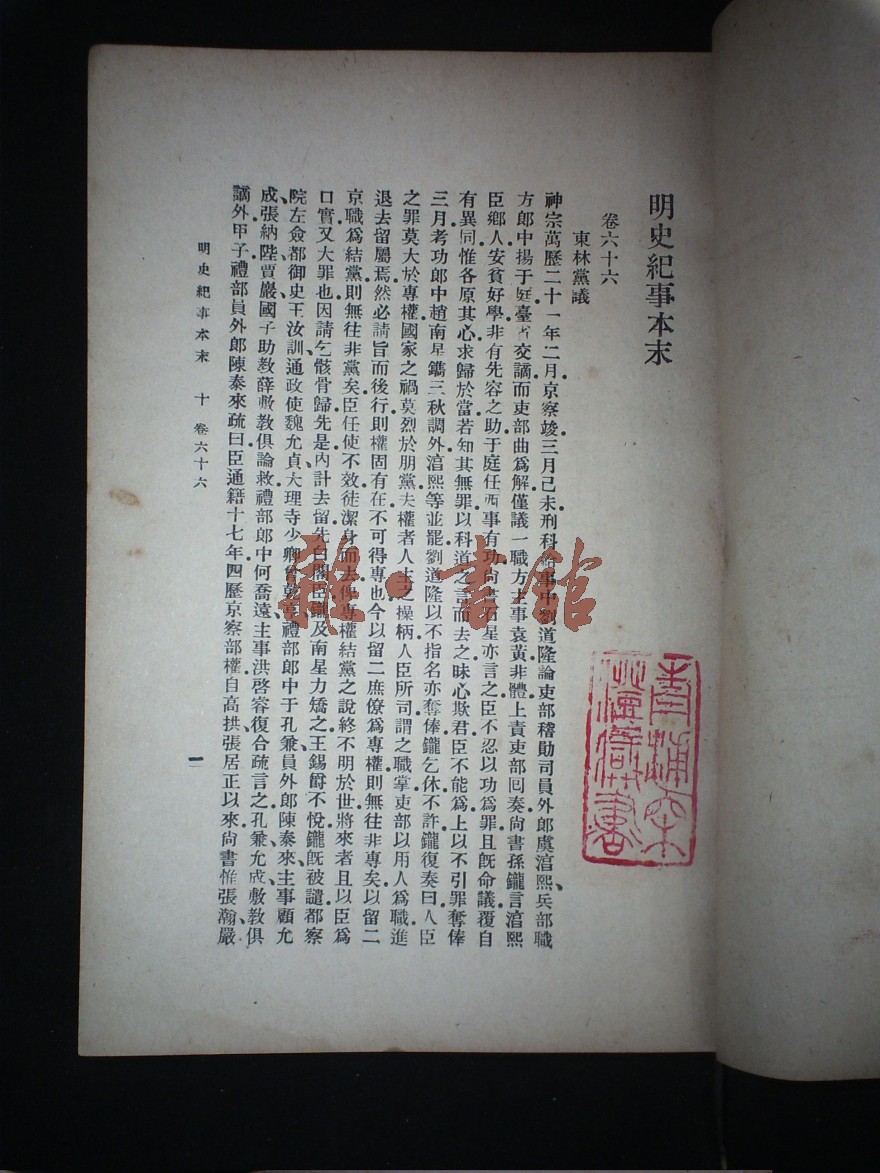 明史紀事本末
卷六十六
東林黨議
神宗萬歷二十一年二月京察竣三月己未刑科給事中劉道隆論吏部稽勛司員外郎虞淯熙、兵部職
方郎中揚于庭臺省交謫而吏部曲爲解僅議一職方主事袁黃非體上責吏部回奏尚書孫鑨言淯熙
臣鄉人安貧好學非有先容之助于庭任西事有功尚書石星亦言之臣不忍以功爲罪且旣命議覆自
有異同惟各原其心求歸於當若知其無罪以科道之言而去之昧心欺君臣不能爲上以不引罪奪俸
三月考功郎中趙南星鐫三秋調外淯熙等並罷劉道隆以不指名亦奪俸鑨乞休不許鑨復奏曰人臣
之罪莫大於專權國家之禍莫烈於朋黨夫權者人主之操柄人臣所司謂之職掌吏部以用人爲職進
退去留屬焉然必請旨而後行則權固有在不可得專也今以留二庶僚爲專權則無往非專矣以留二
京職爲結黨則無往非黨矣臣任使不效徒潔身而去俾專權結黨之說終不明於世將來者且以臣爲
口實又大罪也因請乞骸骨歸先是內計去留先白閣臣鑨及南星力矯之王錫爵不悅鑨旣被譴都察
院左僉都御史王汝訓通政使魏允貞、大理寺少卿曾乾亨、禮部郎中于孔兼、員外郎陳泰來、主事顧允
成、張納陛、賈巖國子助敎薛敷敎俱論救禮部郎中何喬遠、主事洪啓睿復合疏言之孔兼、允成、敷敎俱
謫外甲子禮部員外郎陳泰來疏曰臣通籍十七年四歷京察部權自高拱、張居正以來尚書惟張瀚、嚴
明史紀事本末 十 卷六十六 一
雅·書館